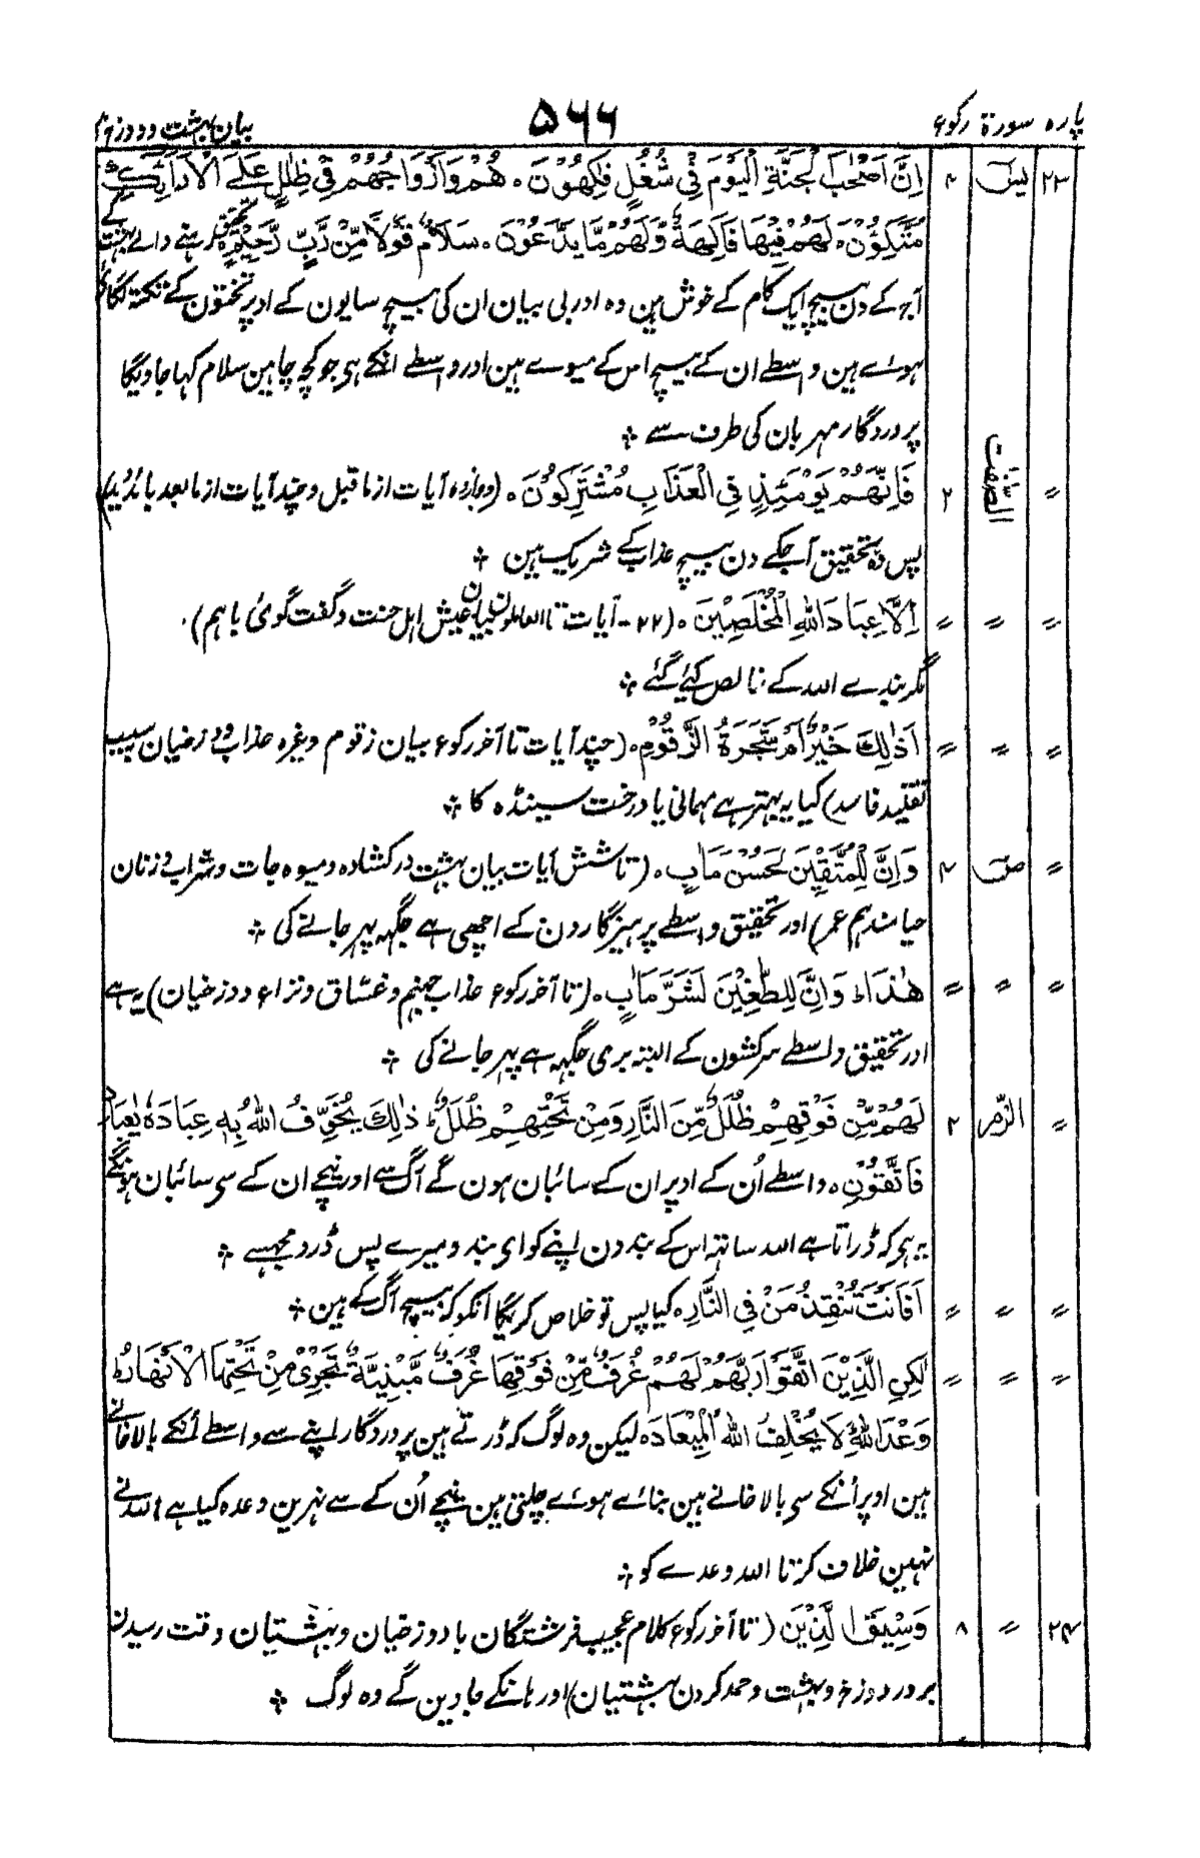 پارہ سورۃ رکوع ۵۶۶ بیان بہشت و دوزخ
۲۳ یٰسٓ ۴ اِنَّ اَصْحٰبَ الْجَنَّةِ الْیَوْمَ فِیْ شُغُلٍ فٰکِهُوْنَ ۰ هُمْ وَاَزْوَاجُهُمْ فِیْ ظِلٰلٍ عَلَی الْاَرَآئِكِ
مُتَّکِؤُنَ ۰ لَهُمْ فِیْهَا فَاکِهَةٌ وَّلَهُمْ مَّا یَدَّعُوْنَ ۰ سَلَامٌ قَوْلًا مِّنْ رَّبٍّ رَّحِیْمٍ ۰ تحقیق رہنے والے بہشت کے
آج کے دن بیچ ایک کام کے خوش ہین وہ اور بی بیان ان کی بیچ سایون کے اوپر تختون کے تکتہ لگائے
ہوئے ہین واسطے ان کے بیچ اس کے میوے ہین اور واسطے انکے ہی جو کچہ چاہین سلام کہا جاویگا
پروردگار مہربان کی طرف سے ؞
〃 الصّٰفّٰت ۲ فَاِنَّهُمْ یَوْمَئِذٍ فِی الْعَذَابِ مُشْتَرِکُوْنَ ۰ (دوازدہ آیات از ماقبل و چند آیات از مابعد باید دید)
پس وہ تحقیق آجکے دن بیچ عذاب کے شریک ہین ؞
〃 〃 〃 اِلَّا عِبَادَ اللهِ الْمُخْلَصِیْنَ ۰ (۲۲ - آیات تا العاملون بیان عیش اہل جنت و گفت گوئ باہم)
مگر بندے اللہ کے خالص کئے گئے ؞
〃 〃 〃 اَذٰلِكَ خَیْرٌ اَمْ شَجَرَةُ الزَّقُّوْمِ ۰ (چند آیات تا آخر رکوع بیان زقوم وغیرہ عذاب دوزخیان بسبب
تقلید فاسد) کیا یہ بہتر ہے مہمانی یا درخت سینڈہ کا ؞
〃 صٓ ۴ وَاِنَّ لِلْمُتَّقِیْنَ لَحُسْنَ مَاٰبٍ ۰ (تا شش آیات بیان بہشت در کشادہ و میوہ جات و شراب و زنان
حیامند ہم عمر) اور تحقیق واسطے پرہیزگارون کے اچھی ہے جگہہ پہر جانے کی ؞
〃 〃 〃 هٰذَا ؕ وَاِنَّ لِلطّٰغِیْنَ لَشَرَّ مَاٰبٍ ۰ (تا آخر رکوع عذاب جہنم و غسّاق و نزاع دوزخیان) یہ ہے
اور تحقیق واسطے سرکشون کے البتہ بری جگہہ ہے پہر جانے کی ؞
〃 الزّمر ۲ لَهُمْ مِّنْ فَوْقِهِمْ ظُلَلٌ مِّنَ النَّارِ وَمِنْ تَحْتِهِمْ ظُلَلٌ ؕ ذٰلِكَ یُخَوِّفُ اللهُ بِهٖ عِبَادَهٗ یٰعِبَادِ
فَاتَّقُوْنِ ۰ واسطے اُن کے اوپر ان کے سائبان ہون گے آگ سے اور نیچے ان کے سی سائبان ہونگے
یہ ہی کہ ڈراتا ہے اللہ ساتہ اس کے بندون اپنے کو ای بندو میرے پس ڈرو مجہسے ؞
〃 〃 〃 اَفَاَنْتَ تُنْقِذُ مَنْ فِی النَّارِ ۰ کیا پس تو خلاص کریگا انکو کہ بیچ آگ کے ہین ؞
〃 〃 〃 لٰکِنِ الَّذِیْنَ اتَّقَوْا رَبَّهُمْ لَهُمْ غُرَفٌ مِّنْ فَوْقِهَا غُرَفٌ مَّبْنِیَّةٌ تَجْرِیْ مِنْ تَحْتِهَا الْاَنْهَارُ
وَعْدَ اللهِ لَا یُخْلِفُ اللهُ الْمِیْعَادَ ۰ لیکن وہ لوگ کہ ڈرتے ہین پروردگار اپنے سے واسطے اُنکے بالاخانے
ہین اوپر اُنکے سی بالاخانے ہین بنائے ہوئے چلتی ہین نیچے اُن کے سے نہرین وعدہ کیا ہے اللہ نے
نہین خلاف کرتا اللہ وعدے کو ؞
۲۴ 〃 ۸ وَسِیْقَ الَّذِیْنَ (تا آخر رکوع کلام عجیب فرشتگان با دوزخیان و بہشتیان وقت رسیدن
بر در دوزخ و بہشت و حمد کردن بہشتیان) اور ہانکے جاوین گے وہ لوگ ؞